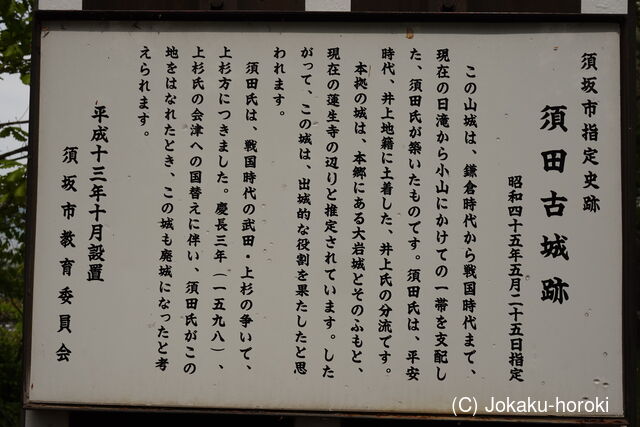 須坂市指定史跡
須田古城跡
昭和四十五年五月二十五日指定
この山城は、鎌倉時代から戦国時代まで、
現在の日滝から小山にかけての一帯を支配し
た、須田氏が築いたものです。須田氏は、平安
時代、井上地籍に土着した、井上氏の分流です。
本拠の城は、本郷にある大岩城とそのふもと、
現在の蓮生寺の辺りと推定されています。した
がって、この城は、出城的な役割を果たしたと思
われます。
須田氏は、戦国時代の武田・上杉の争いで、
上杉方につきました。慶長三年(一五九八)、
上杉氏の会津への国替えに伴い、須田氏がこの
地をはなれたとき、この城も廃城になったと考
えられます。
平成十三年十月設置
須坂市教育委員会
(C) Jokaku-horoki